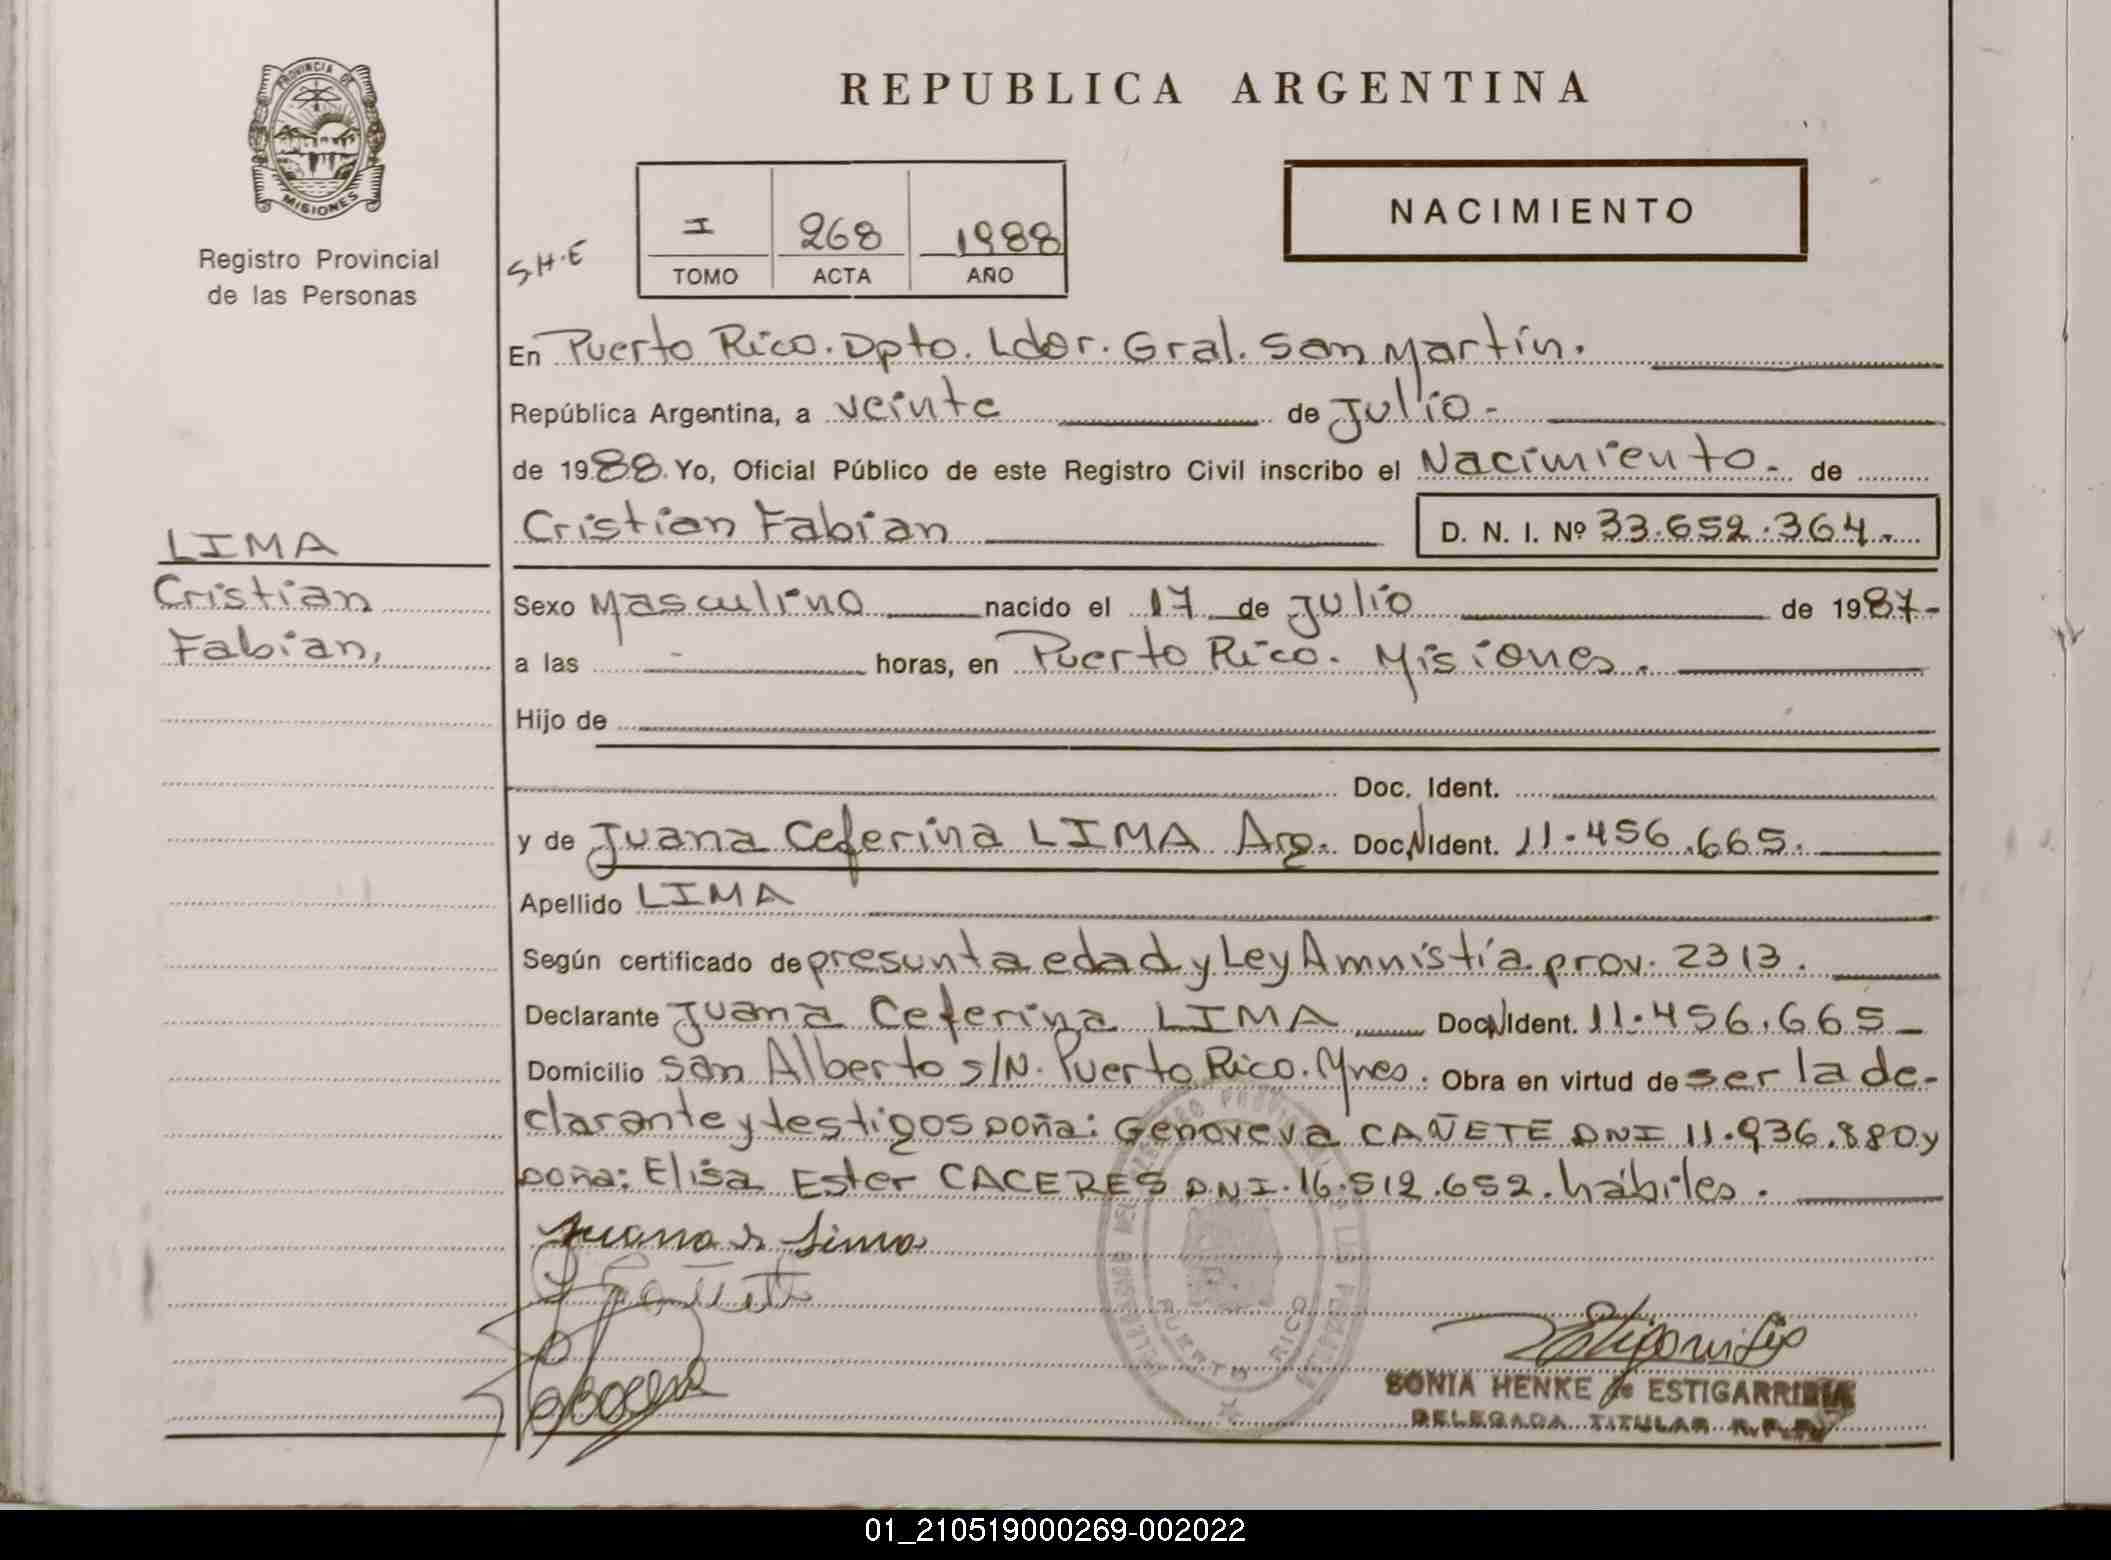 PROVINCIA DE
MISIONES
Registro Provincial
de las Personas
REPUBLICA ARGENTINA
NACIMIENTO
S.H.E
I 268 1988
TOMO ACTA AÑO
En Puerto Rico. Dpto. Ldor. Gral. San Martín.
República Argentina, a veinte de Julio-
de 1988. Yo, Oficial Público de este Registro Civil inscribo el Nacimiento. de
Cristian Fabian D. N. I. Nº 33.652.364.-
LIMA
Cristian
Fabian,
Sexo Masculino nacido el 17 de Julio de 1987-
a las - horas, en Puerto Rico. Misiones.
Hijo de
Doc. Ident.
y de Juana Ceferina LIMA Arg. Doc.N Ident. 11.456.665.
Apellido LIMA
Según certificado de presunta edad y Ley Amnistía prov. 2313.
Declarante Juana Ceferina LIMA Doc.N Ident. 11.456.665-
Domicilio San Alberto s/N. Puerto Rico. Mnes. Obra en virtud de ser la de-
clarante y testigos Doña: Genoveva CAÑETE DNI 11.936.880 y
Doña: Elisa Ester CACERES D.N.I. 16.512.652. hábiles.
Juana de Lima
PUERTO RICO
SONIA HENKE de ESTIGARRIBIA
DELEGADA TITULAR R.P.P.
01_210519000269-002022